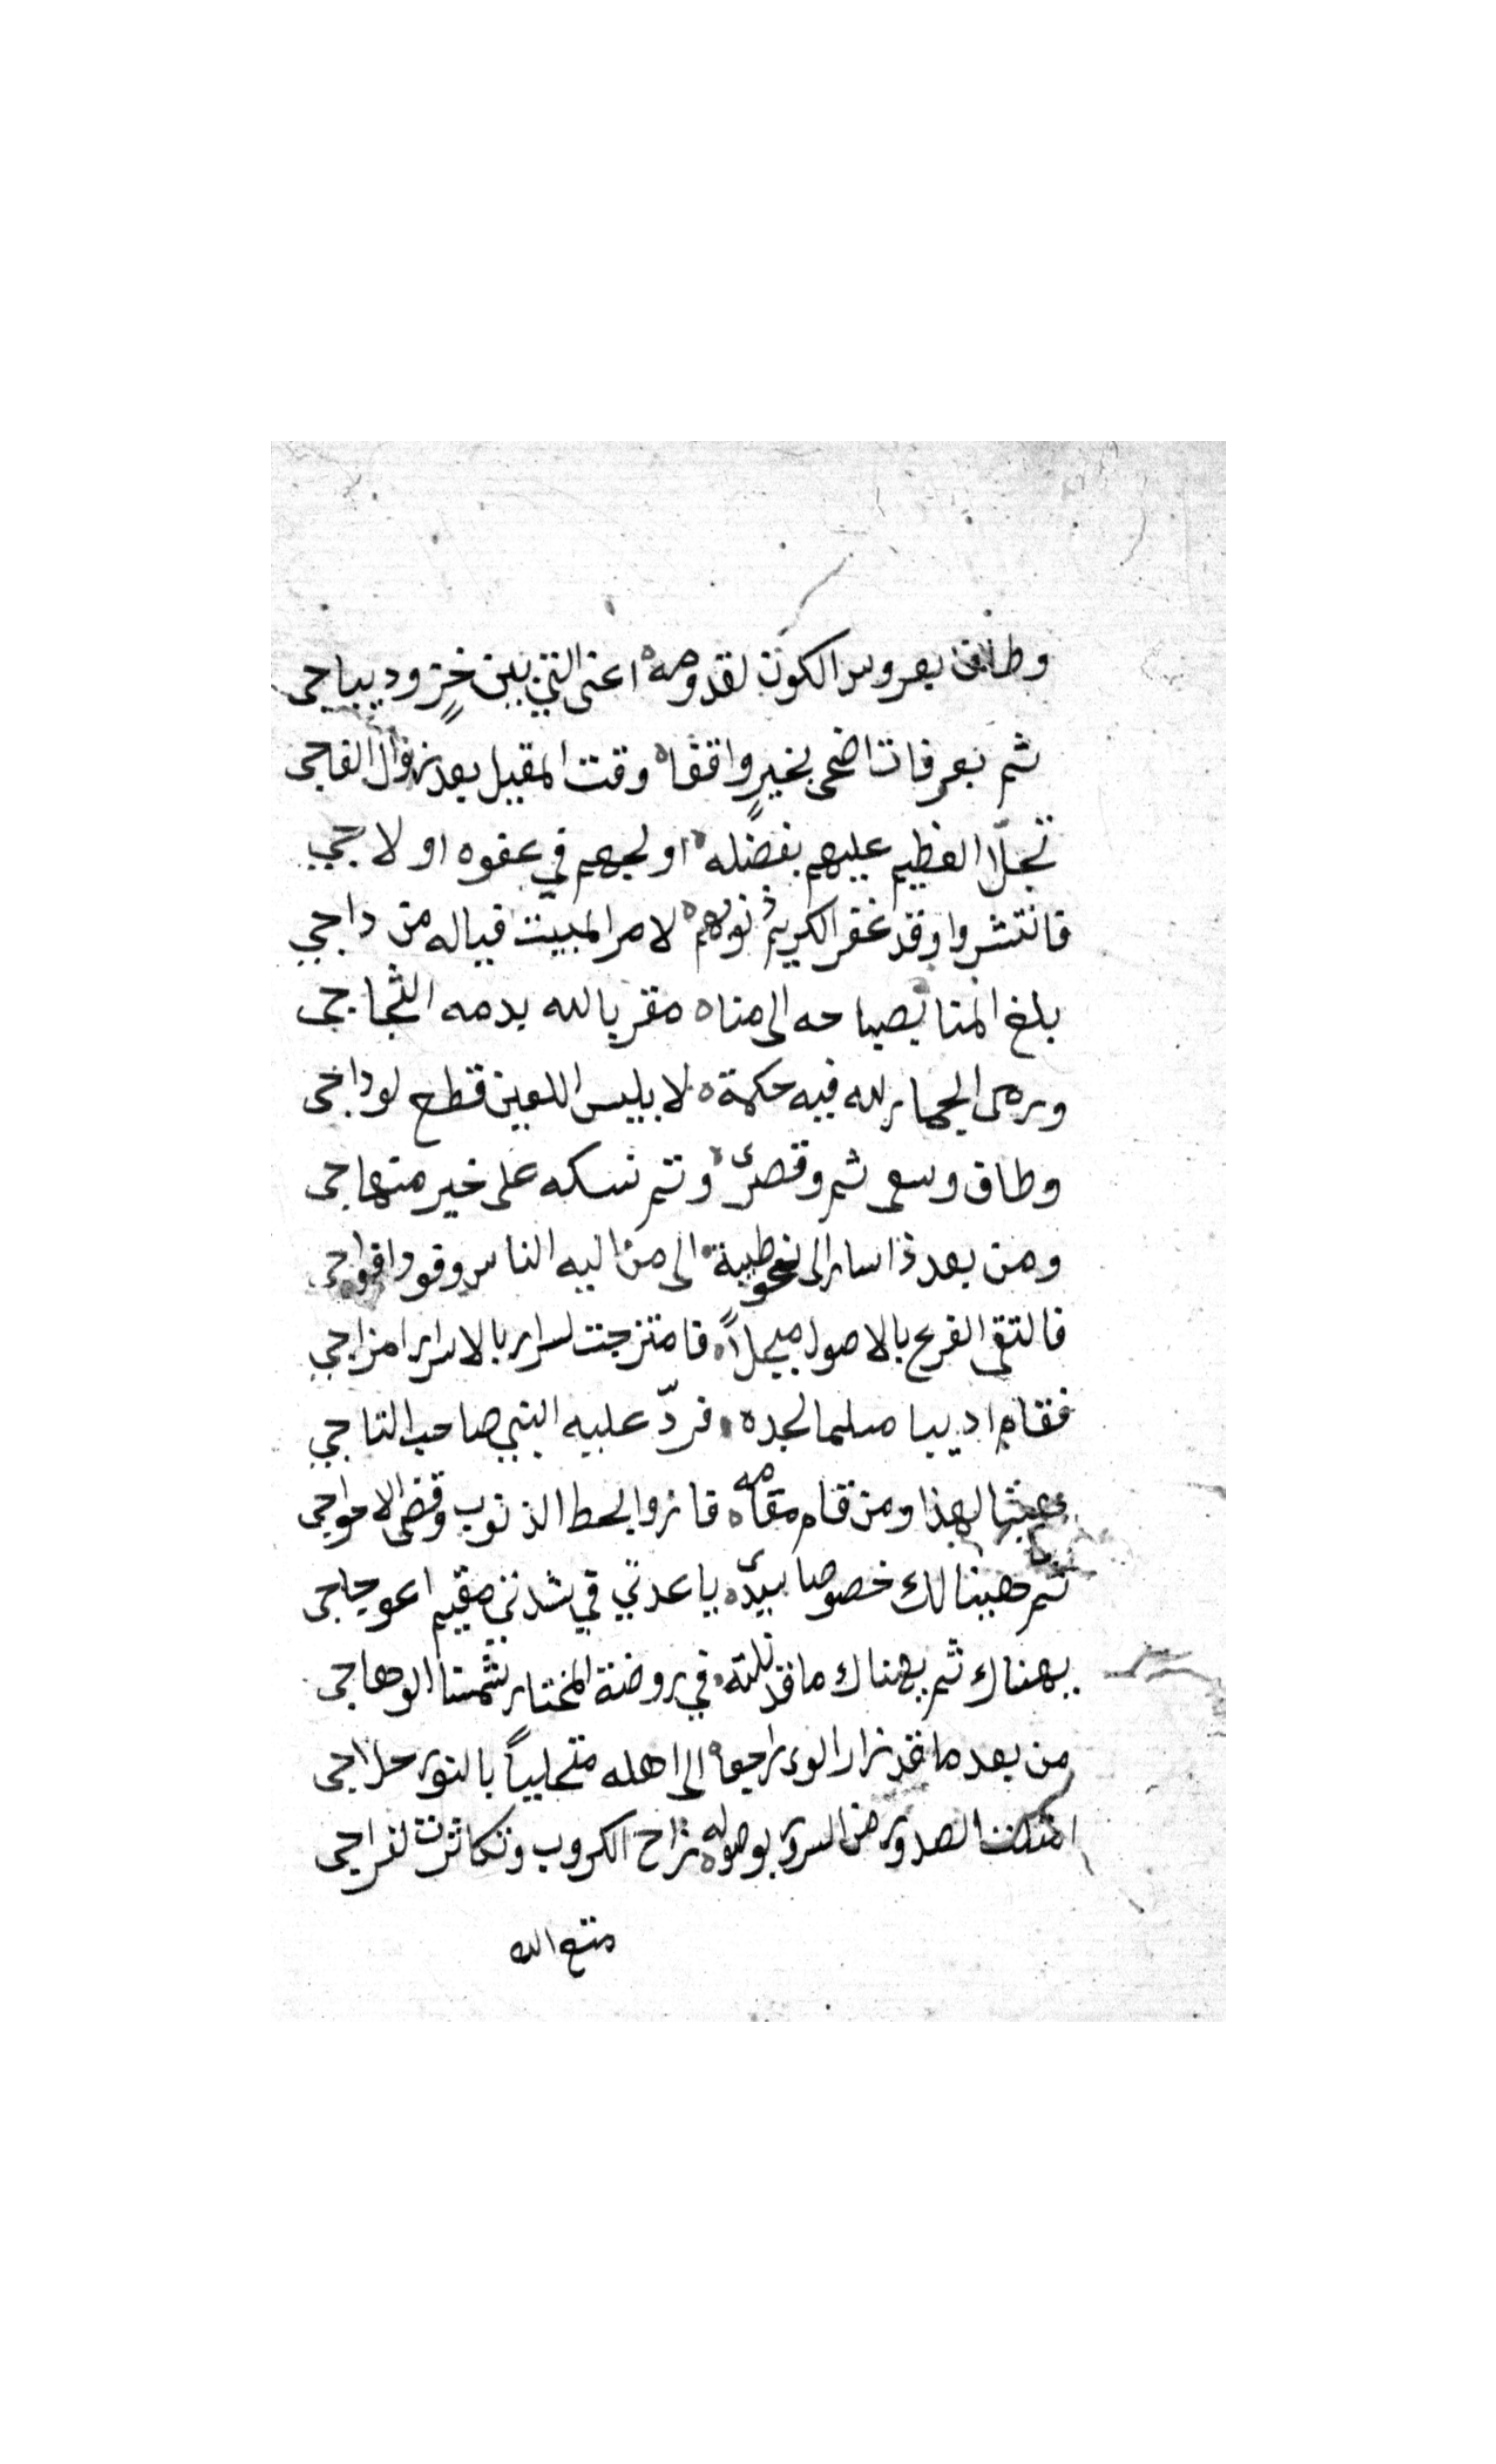 وطاف بعروس الكون لقدومه اعنى التي بين خزٍ وديباجى
ثم بعرفات اضحى بخيرٍ واقفا وقت المقيل بعد زوال الفاجى
تجلّا العظيم عليهم بفضله اولجهم في عفوه اولاجي
فانتشروا وقد غفر الكريم ذنوبهم لامر المبيت فياله من داجي
بلغ المنا بصباحه الى مناه مقربا لله بدمه الثجاجى
ورمى الجمار لله فيه حكمة لابليس اللعين قطع لوداجى
وطاف وسعى ثم وقصرّ وتم نسكه على خير منهاجى
ومن بعد ذا سار الى نحو طيبة الى من اليه الناس وفود افواجى
فالتقى الفرع بالاصول مبجلاً فامتزجت لسرار بالاسرار امزاجي
فقام اديبا مسلما لجده فردّ عليه النبي صاحب التاجي
لهذا ومن قام مقامه فازوا بحط الذنوب وقضى الاحواجى
ثم هنالك خصوصا سيدى ياعدتي في شدتي مقيم اعوجاجى
بهناك ثم بهناك ما قد نلته في روضة المختار شمسنا الوهاجى
من بعد ما قد زار راجعا الى اهله متحلياً بالنور حلاجى
امتلت الصدور من السرور بوصوله زاح الكروب وتكاثرت لفراجى
متع الله